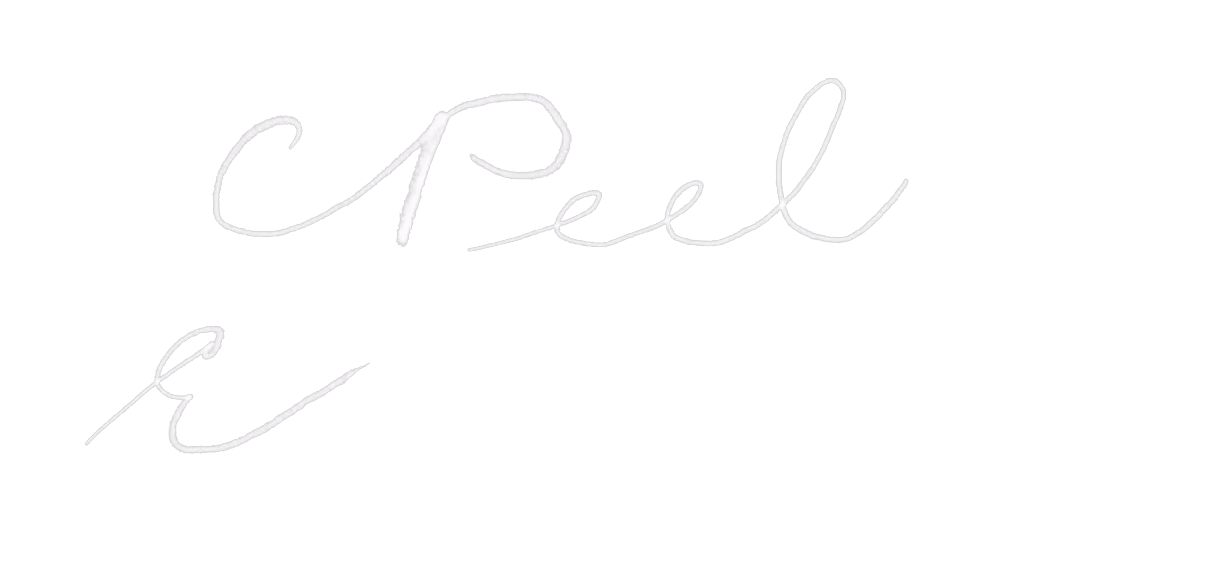 CPeel
E